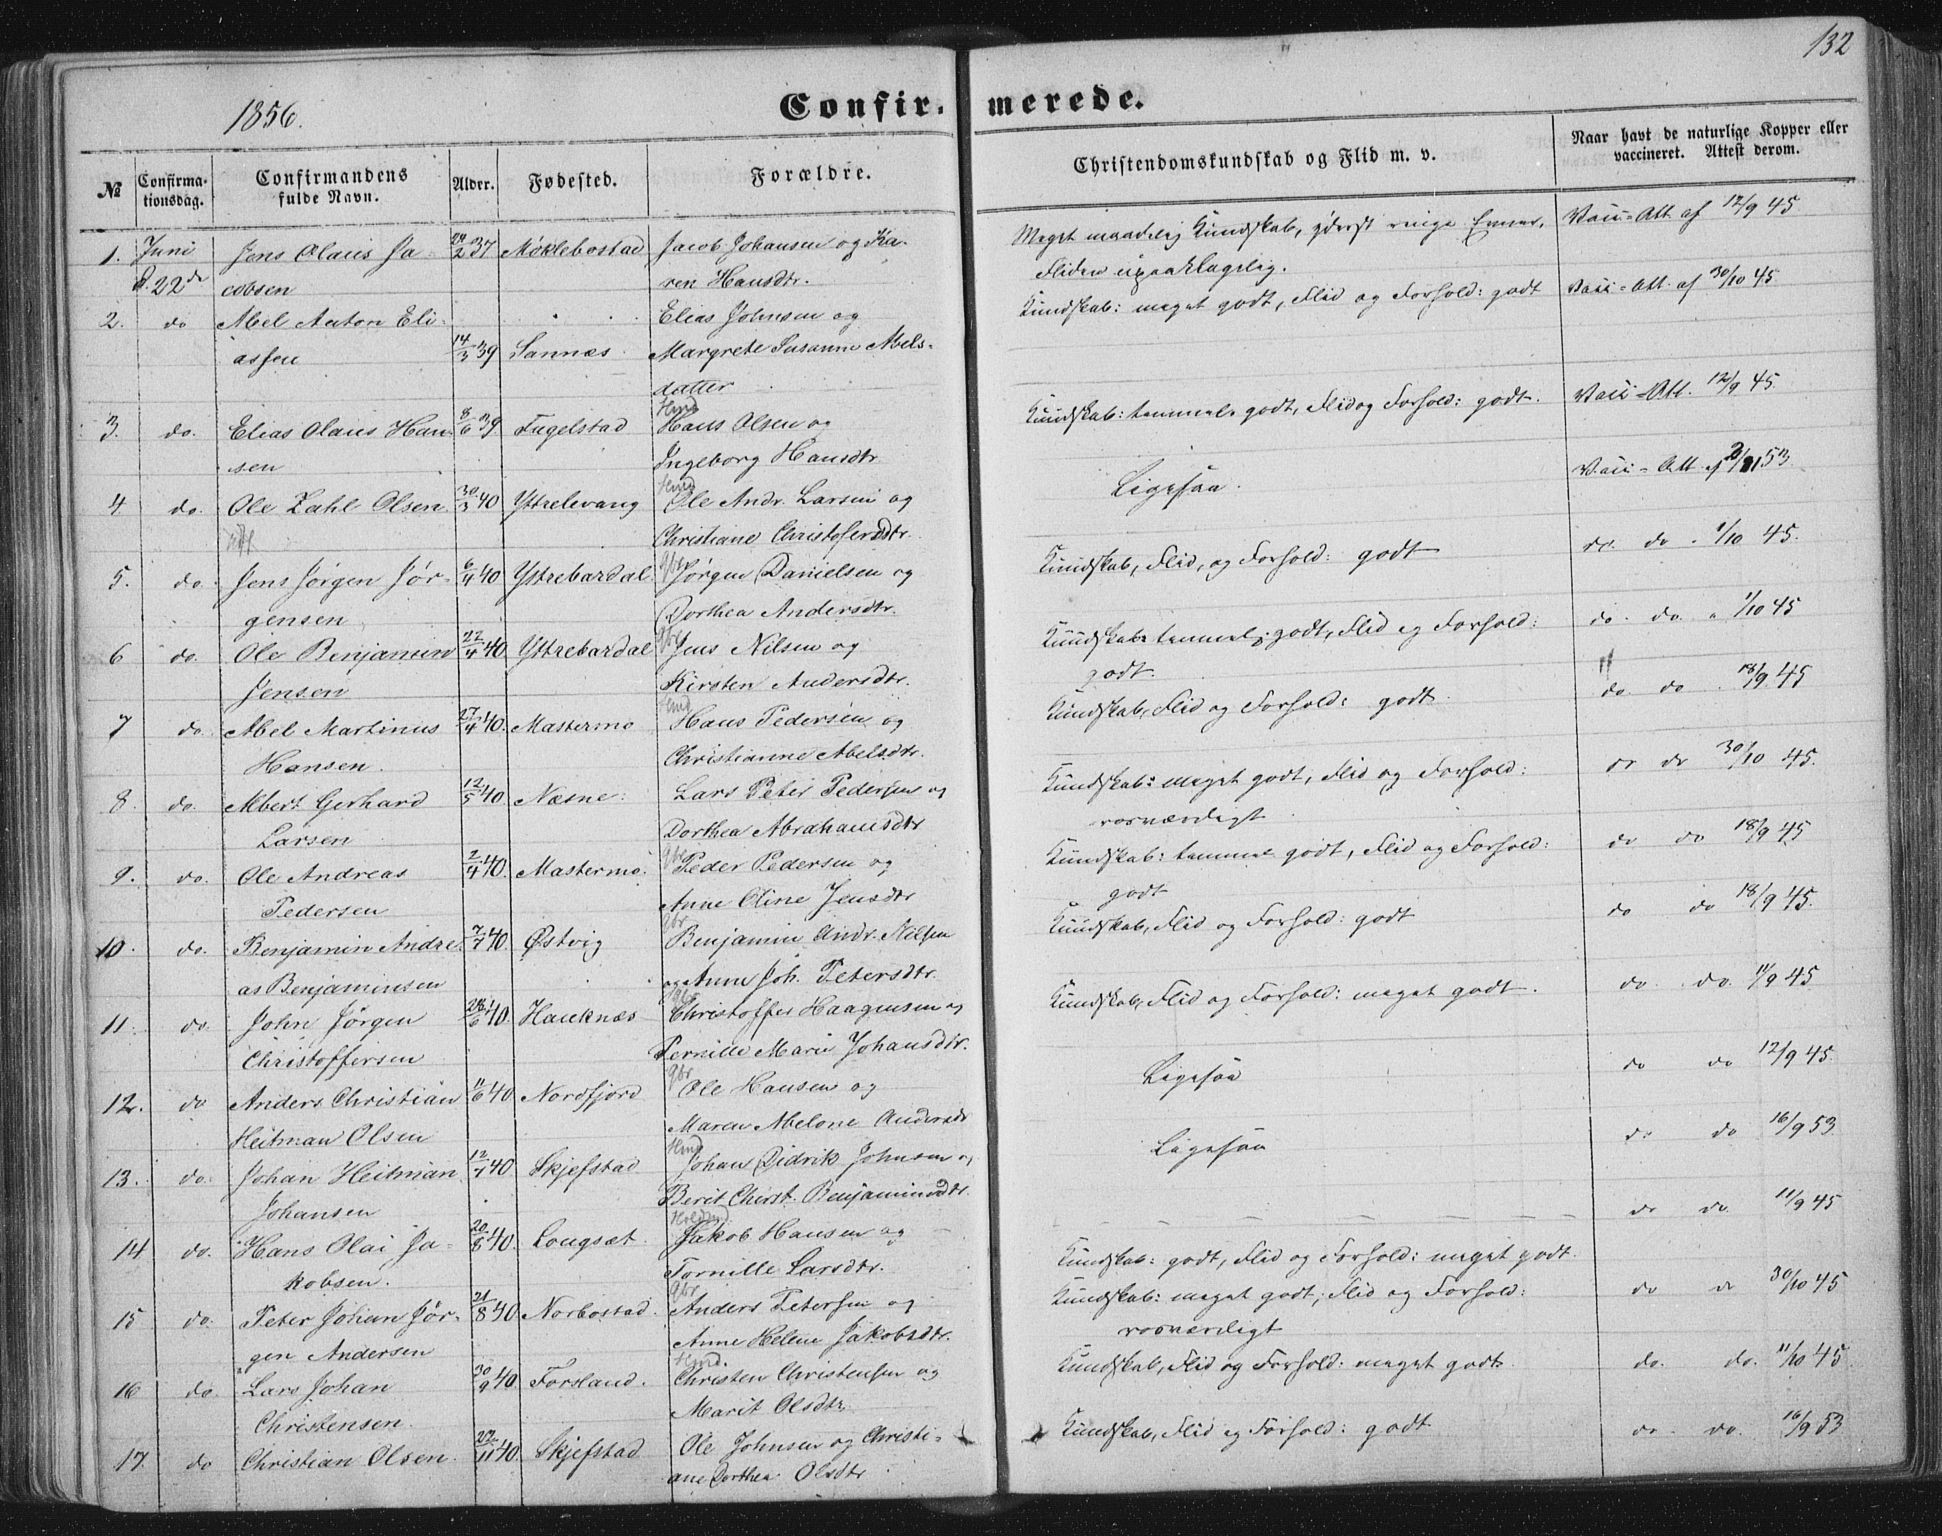 132
1856.
Confir. merede.
№ Confirma-tionsdag. Confirmandens fulde Navn. Alder. Fødested. Forældre. Christendomskundskab og Flid m. v. Naar havt de naturlige Kopper eller vaccineret. Attest derom.
1. Juni Jens Olaus Ja- 24/2 37 Møklebostad Jacob Johansen og Ka- Meget maadelig Kundskab, yderst ringe Evner, Vacc-Att. af 12/9 45
d. 22de cobsen ren Hansdtr. Fliden upaaklagelig.
2. do Abel Anton Eli- Elias Johnsen og Kundskab: meget godt, Flid og Forhold: godt Vacc-Att. af 30/10 45
assen 14/3 39 Sannæs Margrete Susanne Abels-
datter
Hmd
3. do. Elias Olaus Han- 8/6 39 Fugelstad Hans Olsen og Kundskab: temmel. godt, Flid og Forhold: godt. Vacc-Att. 12/9 45
sen Ingeborg Hansdtr
Hmd
4 do. Ole Zahl Olsen 30/3 40 Ytrelevang Ole Andr. Larsen og Ligesaa. Vacc-Att. af 53
Christiane Christofersdtr.
Gbr
5. do. Jens Jørgen Jør- 6/4 40 Ytrebardal Jørgen Danielsen og Kundskab, Flid, og Forhold: godt do. do. 1/10 45.
gensen Dorthea Andersdtr.
Gbr
6 do. Ole Benjamin 22/4 40 Ytrebardal Jens Nilsen og Kundskab temmel. godt, Flid og Forhold: do. do. 1/10 45
Jensen Kirsten Andersdtr. godt.
Hmd
7 do. Abel Martinus 27/4 40. Mastermo Hans Pedersen og Kundskab, Flid og Forhold: godt do do. 18/9 45
Hansen. Christianne Abelsdtr.
8. do. Albert Gerhard 12/5 40 Næsne. Lars Peter Pedersen og Kundskab: meget godt, Flid og Forhold: do do 30/10 45.
Larsen Dorthea Abrahamsdtr rosværdigt
Gbr
9. do. Ole Andreas 2/4 40. Mastermo. Peder Pedersen og Kundskab: temmel godt, Flid og Forhold: do do 18/9 45
Pedersen Anne Oline Jensdtr godt
Gbr
10. do. Benjamin Andre- 7/7 40. Østvig Benjamin Andr. Nilsen Kundskab, Flid og Forhold: godt do do 18/9 45.
as Benjaminsen og Anne Joh. Petersdtr.
Gbr
11. do. John Jørgen 24/6 40. Hauknæs Christoffer Haagensen og Kundskab, Flid og Forhold: meget godt. do. do. 11/9 45
Christoffersen Pernille Marie Johansdtr.
Gbr
12. do Anders Christian 11/6 40 Nordfjord Ole Hansen og Ligesaa do do 12/9 45.
Heitman Olsen Maren Abelone Andersdtr
Hmd
13. do. Johan Heitman 12/7 40 Skjefstad Johan Didrik Johnsen og Ligesaa do do 16/9 53
Johansen Berit Christ. Benjaminsdtr.
14 do. Hans Olai Ja- 20/8 40. Longset Jakob Hansen og Kundskab: godt, Flid og Forhold: meget godt. do do. 11/9 45
kobsen. Pernille Larsdtr.
Gbr
15 do. Peter Johan Jør- 21/8 40 Norbostad. Anders Petersen og Kundskab: meget godt, Flid og Forhold: do do 30/10 45
gen Andersen Anne Helene Jakobsdtr. rosværdigt
Hmd.
16 do Lars Johan 30/9 40 Forsland. Christen Christensen og Kundskab, Flid og Forhold: meget godt. do. do. 11/10 45.
Christensen. Marit Olsdtr
17. do Christian Olsen. 22/11 40. Skjefstad Ole Johnsen og Christi- Kundskab, Flid og Forhold: godt do. do. 16/9 53
ane Dorthea Olsdtr